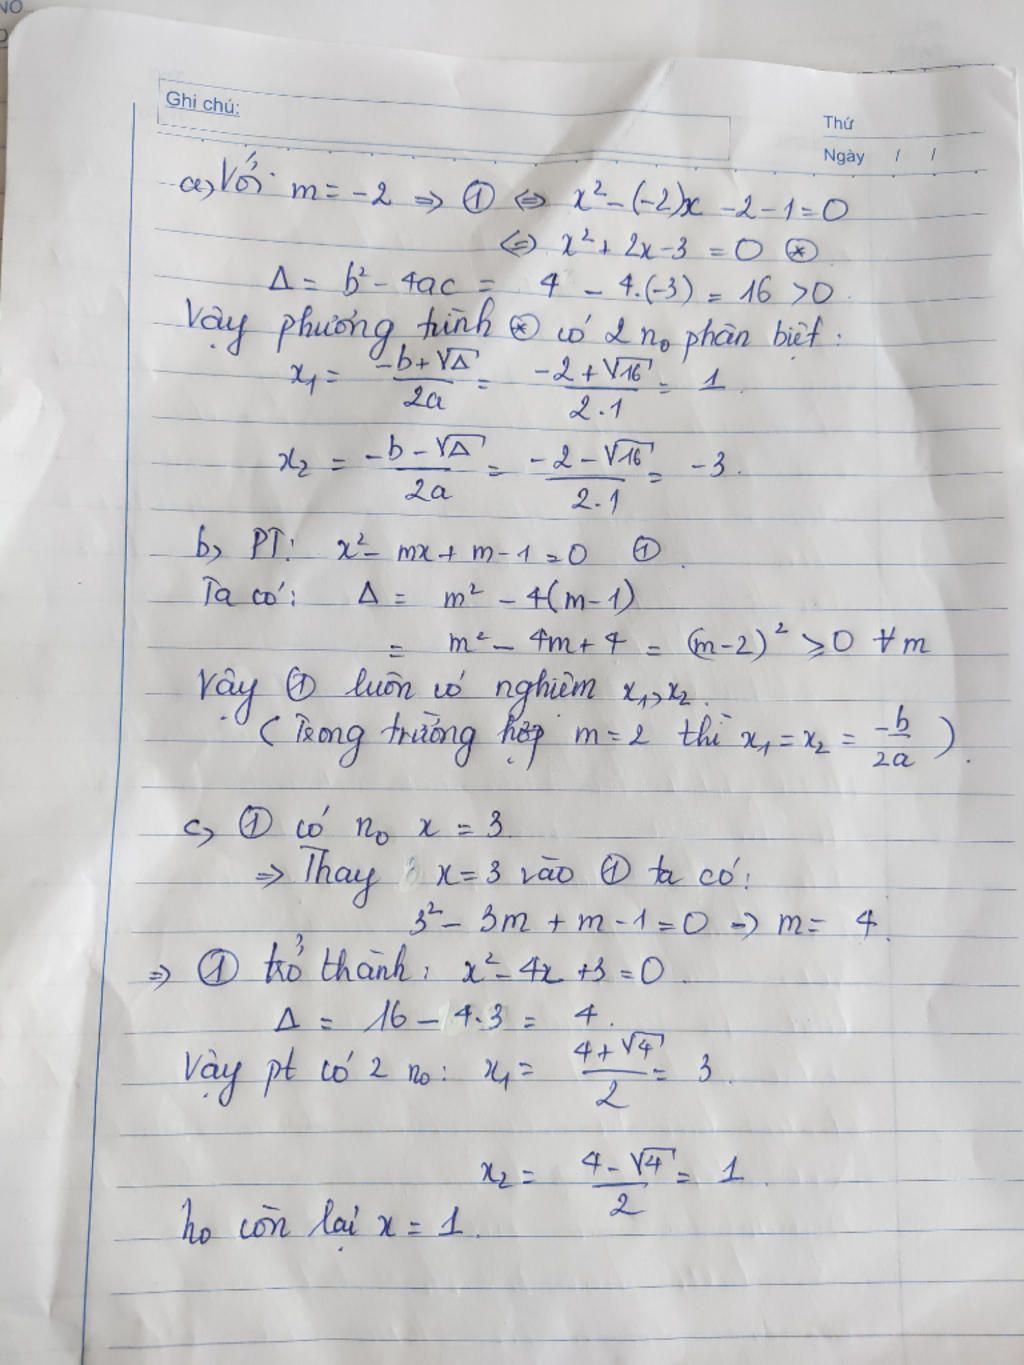 NO
Ghi chú:
Thứ
Ngày / /
a, Với m = -2 => ① <=> x² - (-2)x - 2 - 1 = 0
<=> x² + 2x - 3 = 0 ⊛
Δ = b² - 4ac = 4 - 4.(-3) = 16 > 0.
Vậy phương trình ⊛ có 2 n₀ phân biệt:
x₁ = (-b + √Δ)/2a = (-2 + √16)/2.1 = 1.
x₂ = (-b - √Δ)/2a = (-2 - √16)/2.1 = -3.
b, PT: x² - mx + m - 1 = 0 ①.
Ta có: Δ = m² - 4(m-1)
= m² - 4m + 4 = (m-2)² ≥ 0 ∀m
Vậy ① luôn có nghiệm x₁, x₂.
(Trong trường hợp m = 2 thì x₁ = x₂ = -b/2a).
c, ① có n₀ x = 3.
=> Thay x = 3 vào ① ta có:
3² - 3m + m - 1 = 0 => m = 4.
=> ① trở thành: x² - 4x + 3 = 0.
Δ = 16 - 4.3 = 4.
Vậy pt có 2 n₀: x₁ = (4 + √4)/2 = 3.
x₂ = (4 - √4)/2 = 1
n₀ còn lại x = 1.